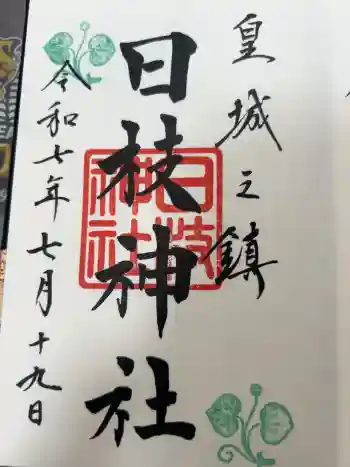 皇城之鎮
日枝神社
日枝神社
令和七年七月十九日